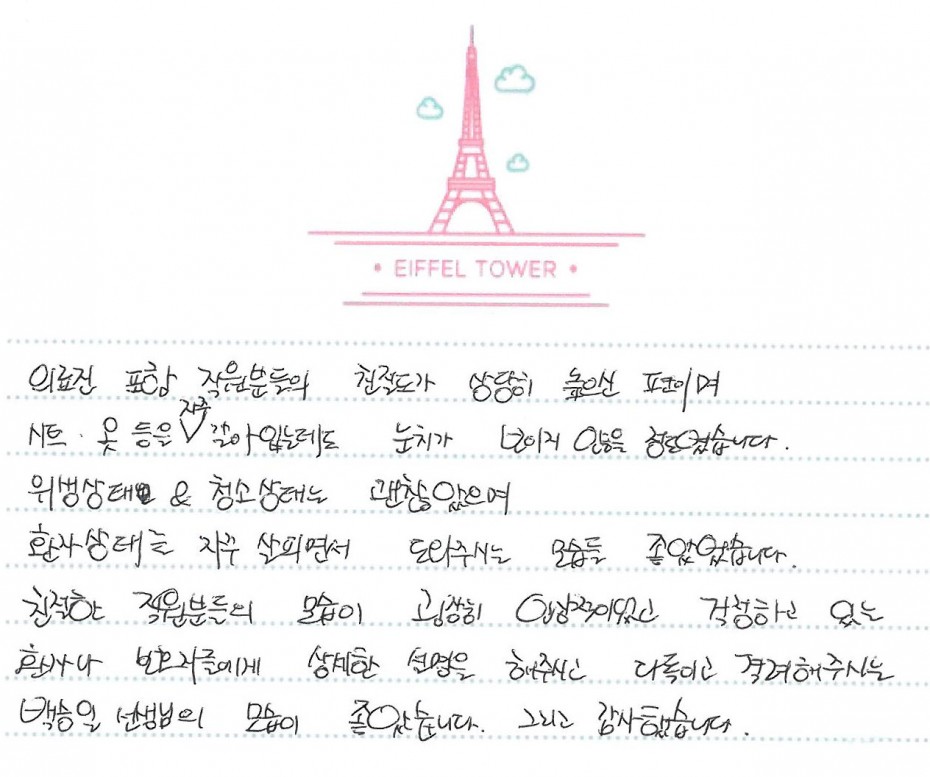 • EIFFEL TOWER •
의료진 포함 직원분들의 친절도가 상당히 높으신 편이며
시트·옷 등을 자주 갈아입는데도 눈치가 보이지 않을 정도였습니다.
위생상태 & 청소상태는 괜찮았으며
환자상태를 자꾸 살피면서 도와주시는 모습들 좋았었습니다.
친절한 직원분들의 모습이 굉장히 인상적이었고 걱정하고 있는
환자나 보호자들에게 상세한 설명을 해주시고 다독이고 격려해주시는
백승일 선생님의 모습이 좋았습니다. 그리고 감사했습니다.